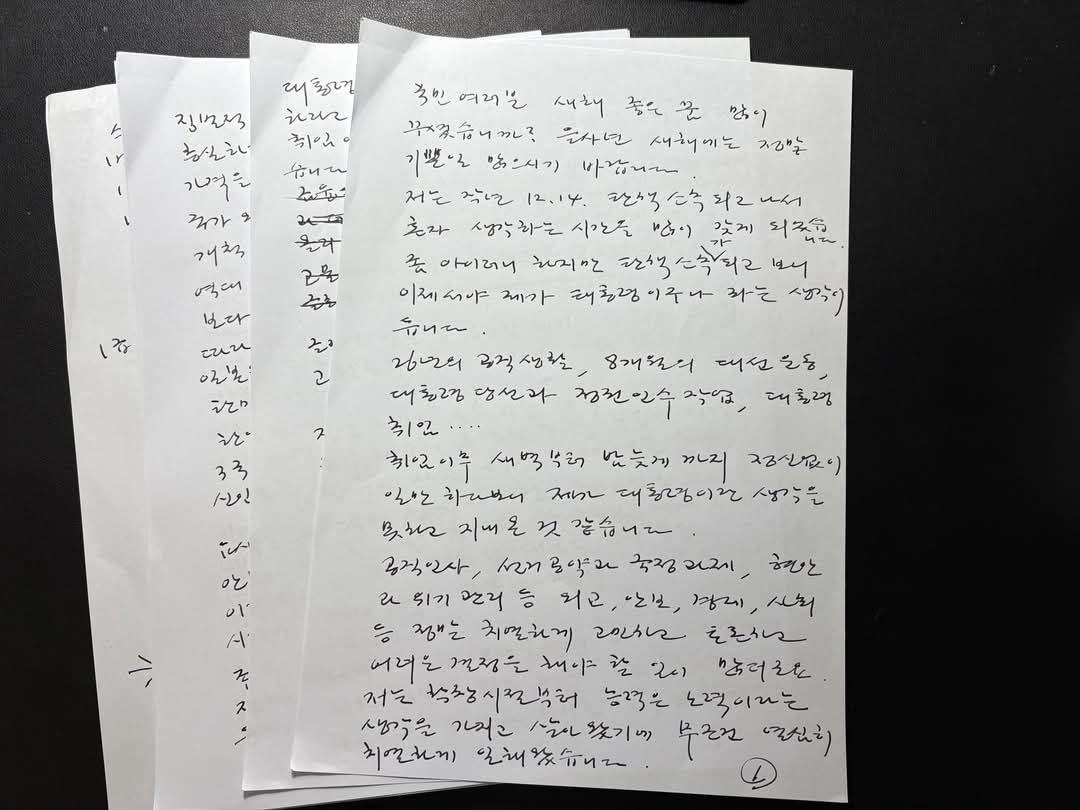 국민 여러분 새해 좋은 꿈 많이
꾸셨습니까? 을사년 새해에는 정말
기쁜일 많으시기 바랍니다.
저는 작년 12.14. 탄핵 소추 되고 나서
혼자 생각하는 시간을 많이 갖게 되었습니다.
좀 아이러니 하지만 탄핵 소추가 되고 보니
이제서야 제가 대통령이구나 하는 생각이
듭니다.
26년의 공직 생활, 8개월의 대선 운동,
대통령 당선과 정권 인수 작업, 대통령
취임 ....
취임이후 새벽부터 밤늦게 까지 정신없이
일만 하다보니 제가 대통령이란 생각을
못하고 지내 온 것 같습니다.
공직인사, 선거 공약과 국정과제, 현안
과 위기 관리 등 외교, 안보, 경제, 사회
등 정말 치열하게 고민하고 토론하고
어려운 결정을 해야 할 일이 많더군요.
저는 학창시절부터 능력은 노력이라는
생각을 가지고 살아 왔기에 무조건 열심히
치열하게 일해 왔습니다.
1
대통령
하라고
취임
습니다
국가
개척
역대
보다
따라
3국